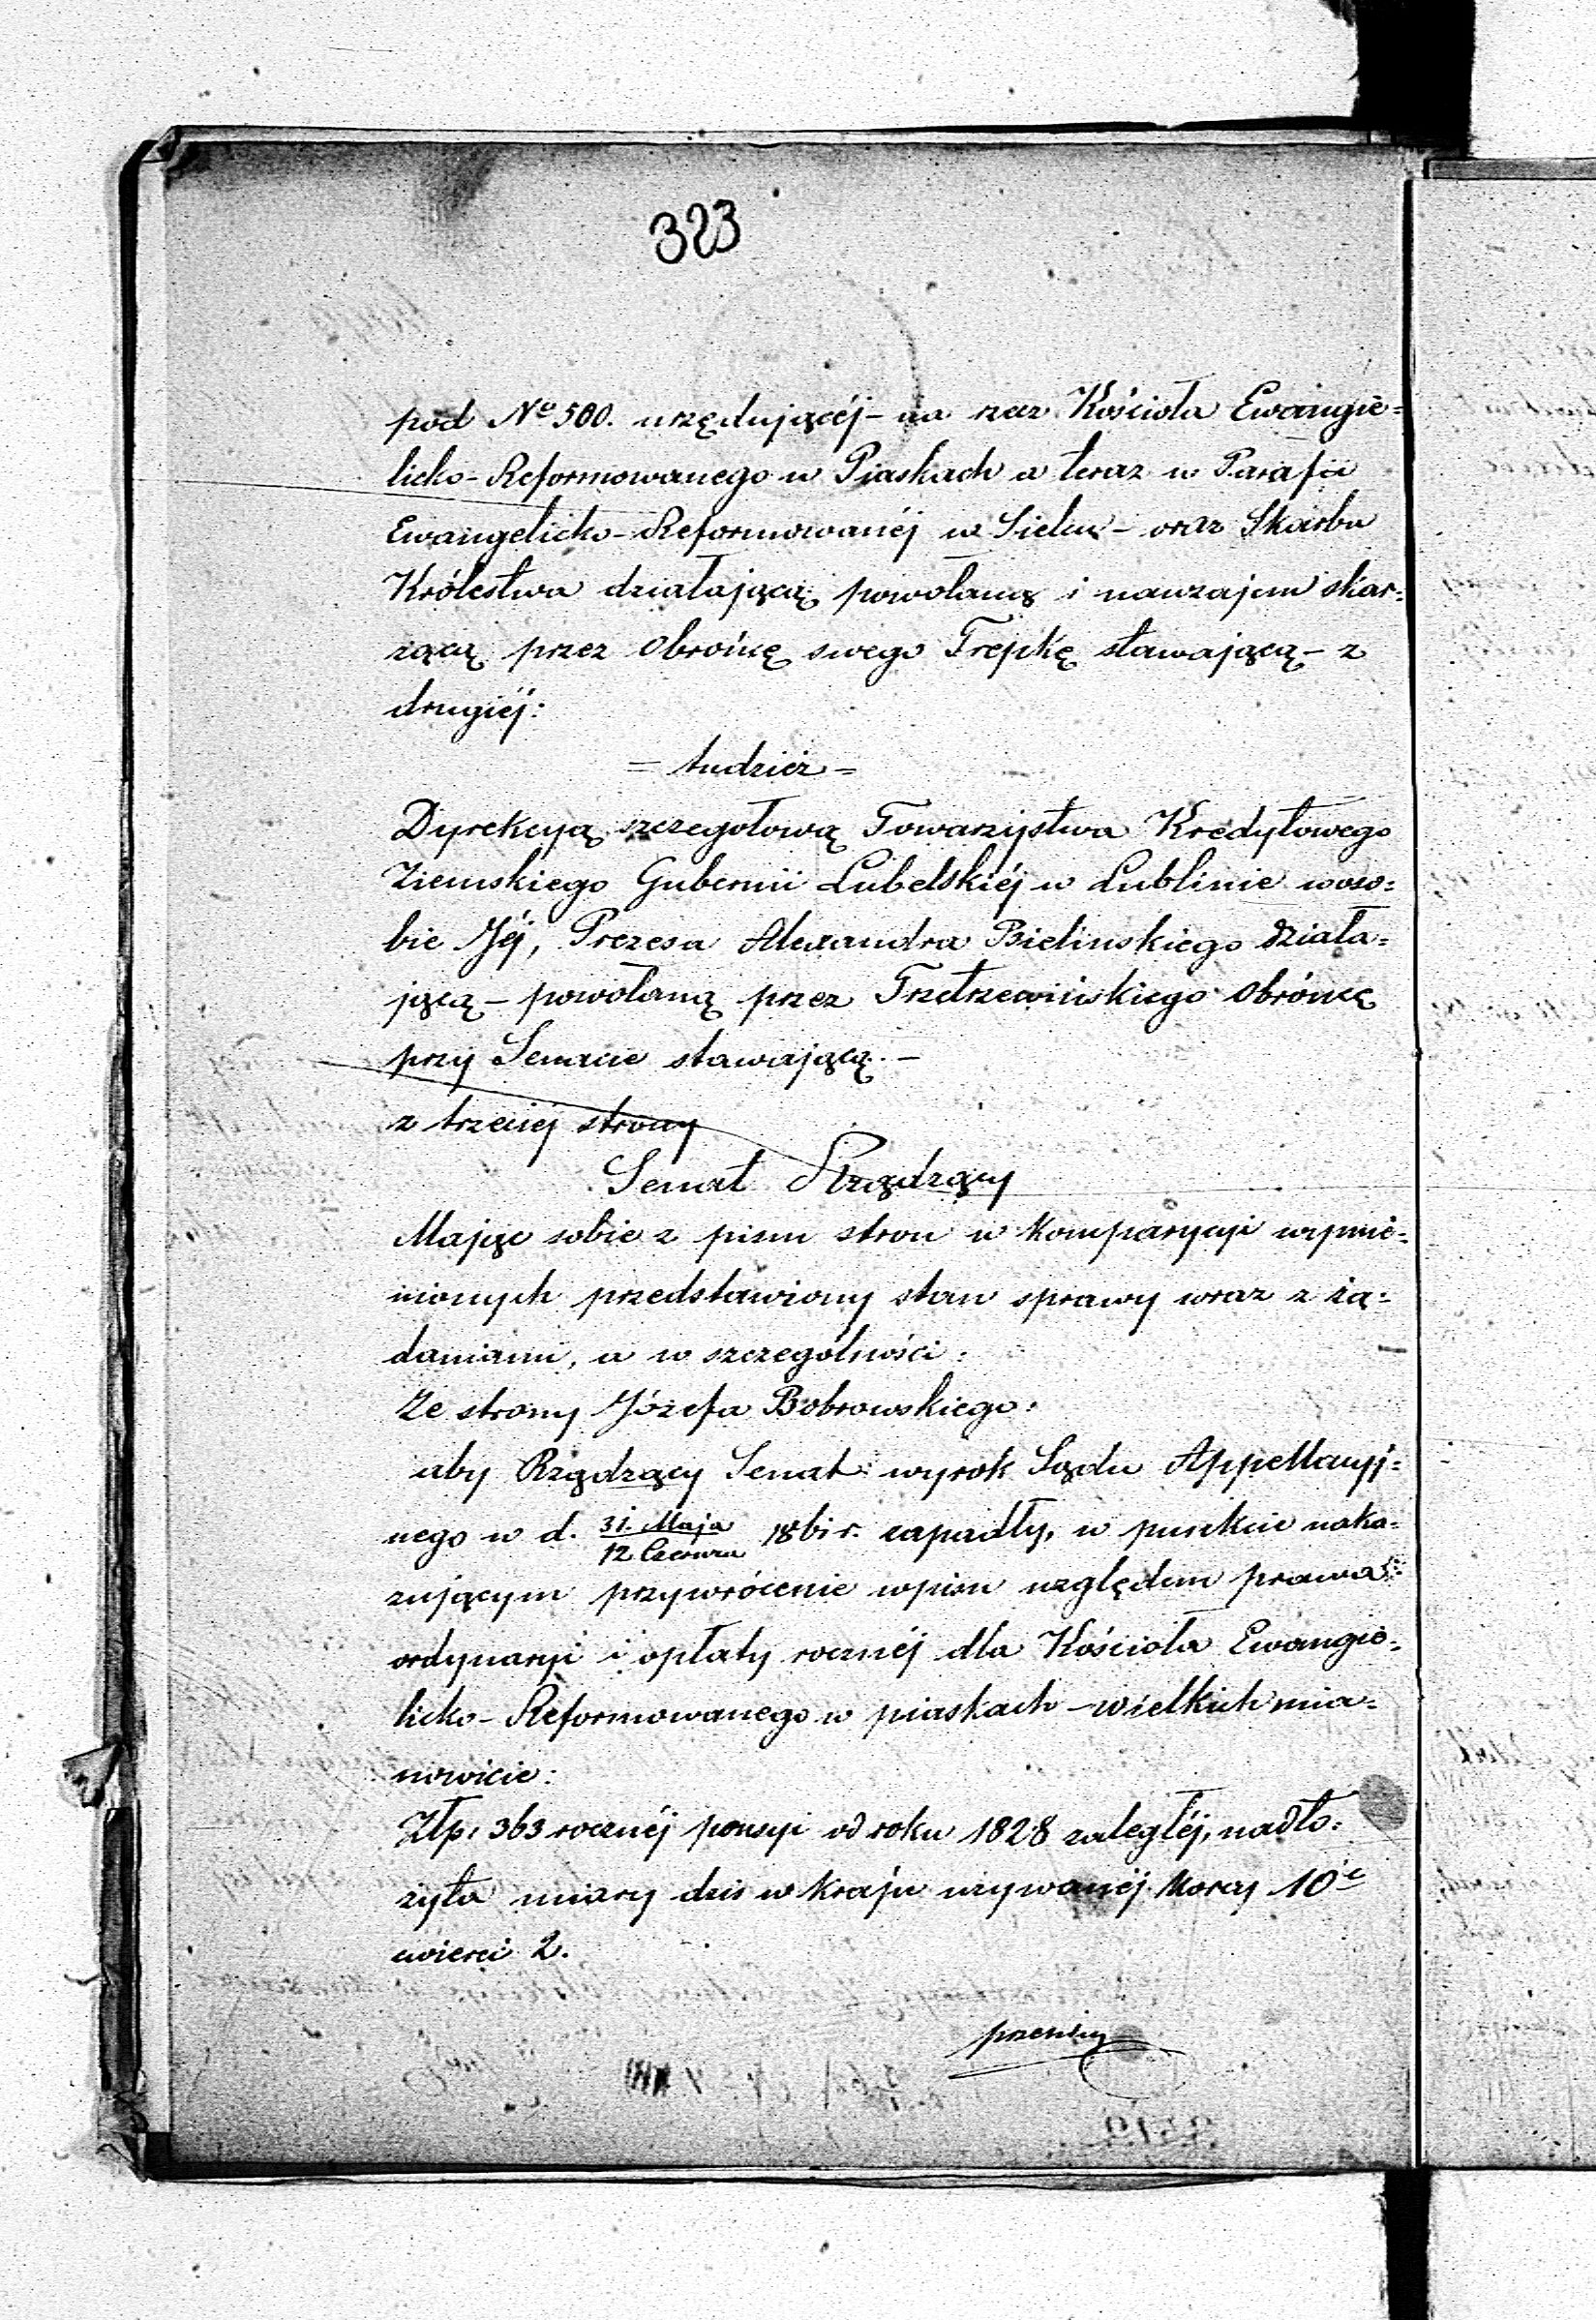 323
pod No 500. urzędującéj – na rzecz Kościoła Ewangie=
licko-Reformowanego w Piaskach a teraz w Parafii
Ewangelicko-Reformowanéj w Sielcu – oraz Skarbu
Królestwa działającą powołaną i nawzajem skar=
żącą przez Obrońcę swego Trejtkę stawającą – z
drugiéj:
= tudzież =
Dyrekcyą szczegołową Towarzystwa Kredytowego
Ziemskiego Gubernii Lubelskiéj w Lublinie w oso=
bie Jéj, Prezesa Alexandra Bielinskiego działa=
jącą – powołaną przez Trzetrzewińskiego Obrońcę
przy Senacie stawającą. –
z trzeciéj strony
Senat Rządzący
Mając sobie z pism stron w komparycyi wymie=
nionych przedstawiony stan sprawy wraz z żą=
daniami, a w szczególności:
Ze strony Józefa Bobrowskiego:
aby Rządzący Senat wyrok Sądu Appellacyj=
nego w d. 31. Maja / 12 Czerwca 1861 r. zapadły, w punkcie naka=
zującym przywrócenie wpisu względem prawa
ordynaryi i opłaty rocznéj dla Kościoła Ewangie=
licko-Reformowanego w piaskach – wielkich mia=
nowicie:
Złp. 363 rocznéj pensyi od roku 1828 zaległéj, nadto:
żyta miary dziś w kraju używanéj korcy 10
cwierci 2.